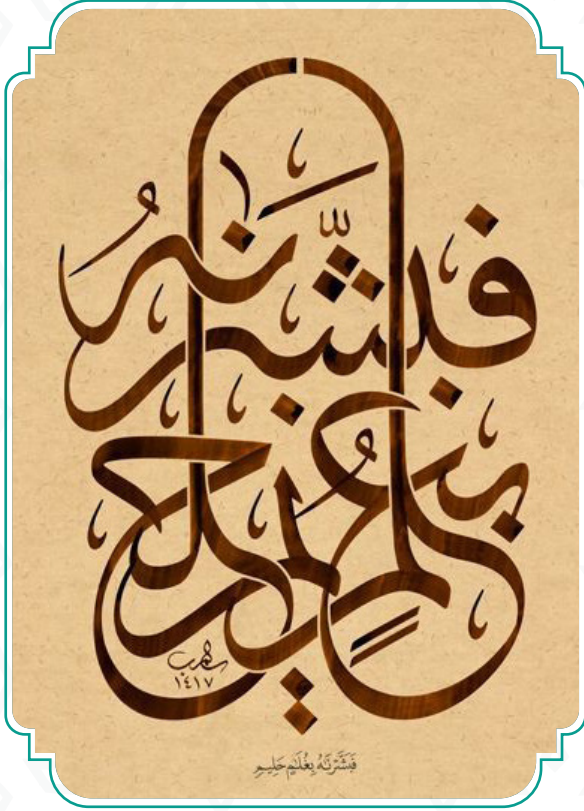 فَبَشَّرْنَٰهُ
بِغُلَٰمٍ حَلِيمٍ
١٤١٧
فَبَشَّرْنَٰهُ بِغُلَٰمٍ حَلِيمٍ